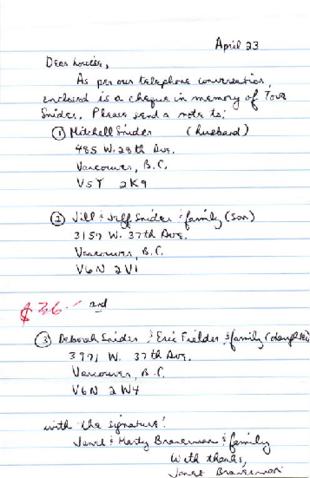 April 23
Dear Louise,
As per our telephone conversation,
enclosed is a cheque in memory of Tova
Snider. Please send a note to:
① Mitchell Snider (husband)
485 W. 28th Ave.
Vancouver, B.C.
V5Y 2K9
② Jill & Jeff Snider & family (son)
3157 W. 37th Ave.
Vancouver, B.C.
V6N 2V1
$36.- and
③ Deborah Snider & Eric Fielder & family (daughter)
3771 W. 37th Ave.
Vancouver, B.C.
V6N 2W4
with the signature:
Janet & Marty Braverman & family
With thanks,
Janet Braverman